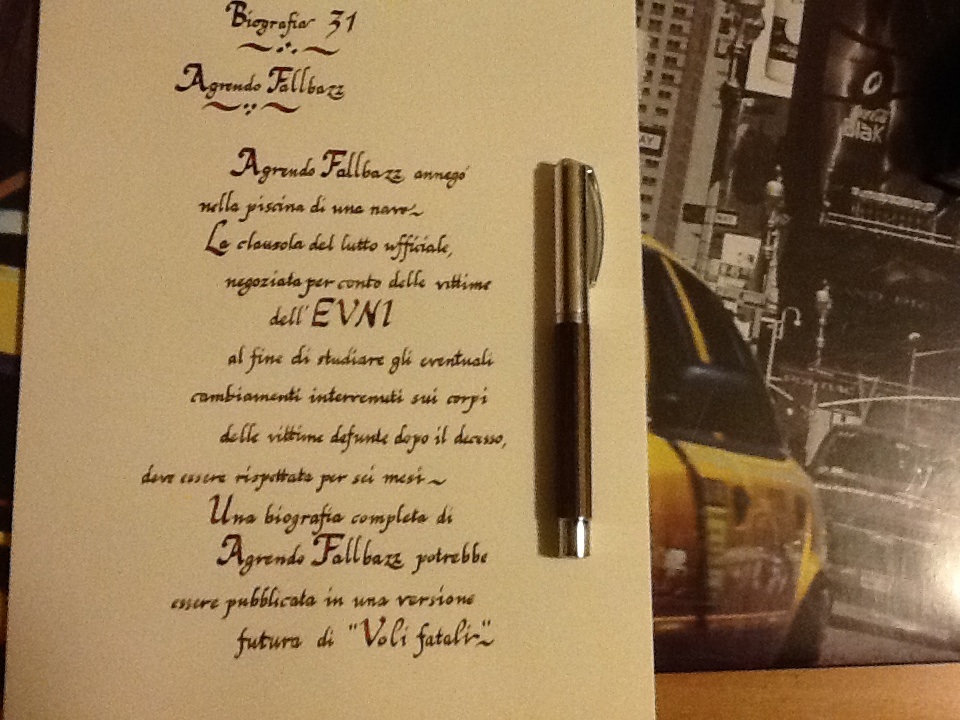 Biografia 31
Agrendo Fallbazz
Agrendo Fallbazz annegò
nella piscina di una nave~
La clausola del lutto ufficiale,
negoziata per conto delle vittime
dell'EVNI
al fine di studiare gli eventuali
cambiamenti intervenuti sui corpi
delle vittime defunte dopo il decesso,
deve essere rispettata per sei mesi~
Una biografia completa di
Agrendo Fallbazz potrebbe
essere pubblicata in una versione
futura di "Voli fatali"~
BlaK